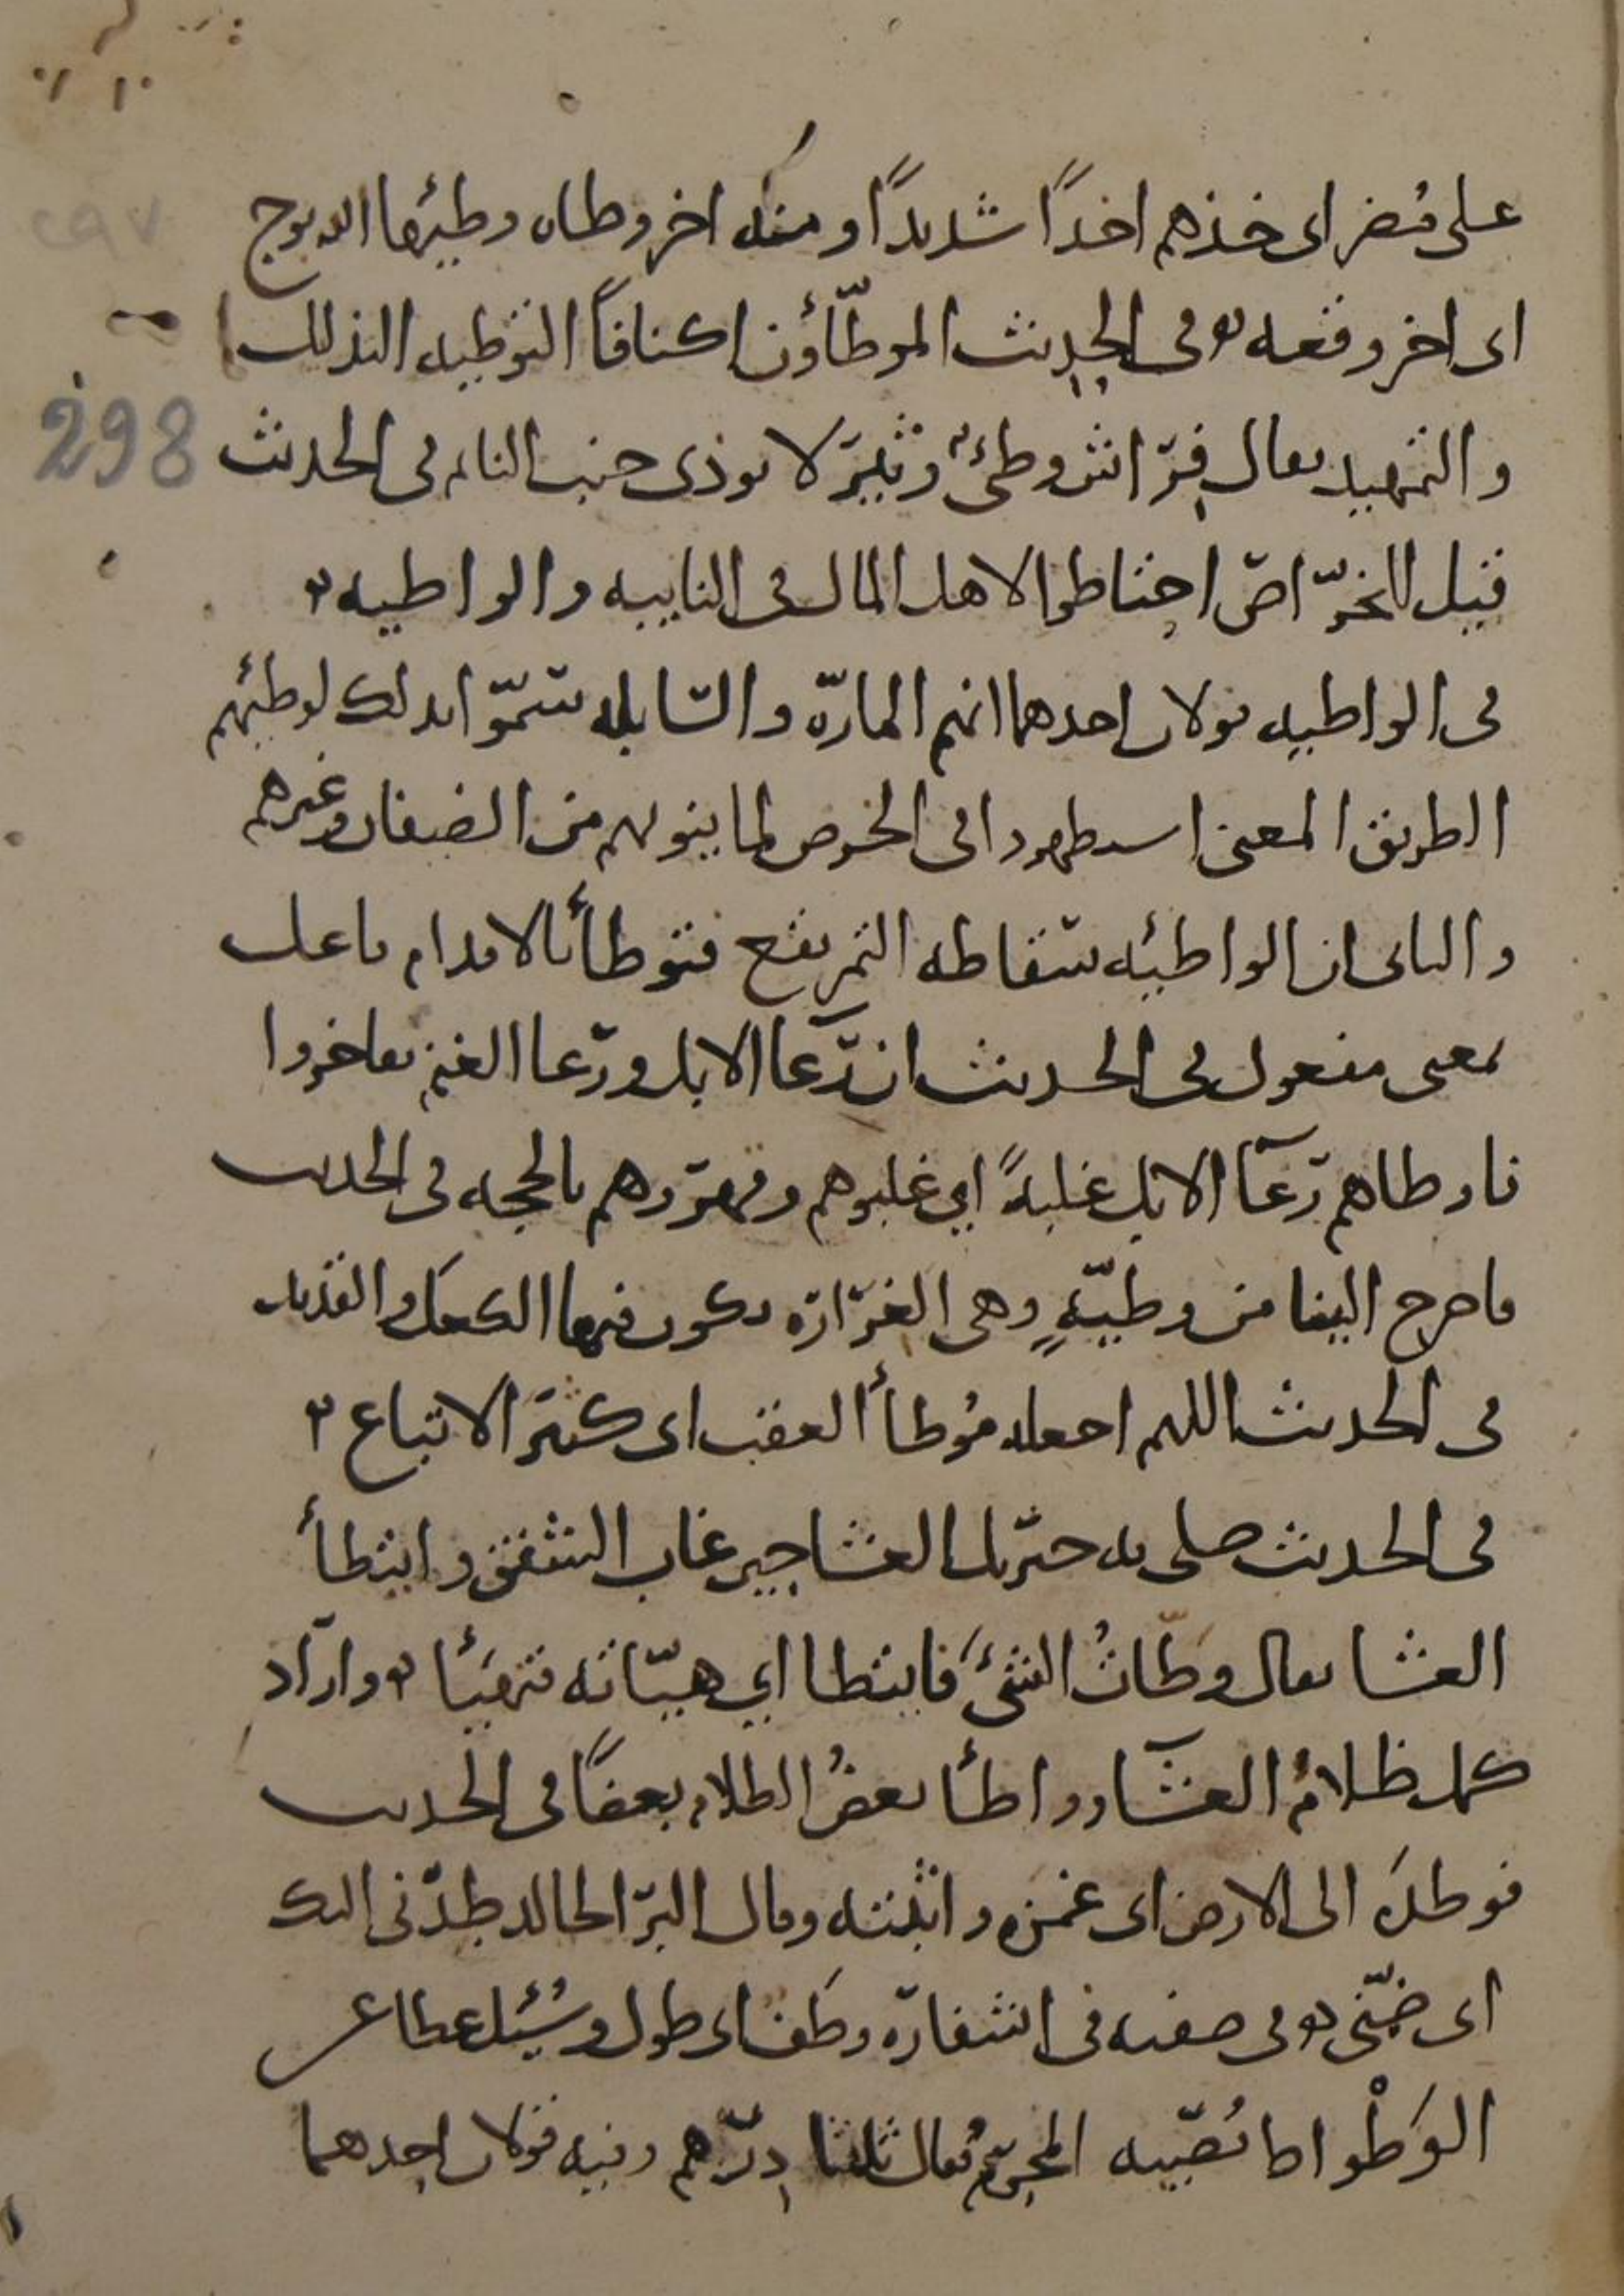 على مضر اى خذهم اخذًا شديدًا ومنه اخر وطاه وطيئها الله بوج
اى اخر وقعه وفى الحديث الموطّأون اكنافًا التوطيه التذليل
والتمهيد يقال فراش وطئ وثير لا يوذى جنب النايم فى الحديث
298
قيل للخرّاص احتاطوا لاهل المال فى النايبه والواطيه
فى الواطيه قولان احدهما انهم المارّه والسابله سمّوا بذلك لوطئهم
الطريق المعنى استظهروا فى الخرص لما ينوبهم من الضيفان وغيرهم
والثانى ان الواطئه سقاطه التمر يقع فتوطأ بالاقدام فاعل
بمعنى مفعول فى الحديث ان رعآ الابل ورعا الغنم تفاخروا
فاوطاهم رعآ الابل غلبةً اي غلبوهم وقهروهم بالحجه فى الحديث
فاخرج الينا من وطيّةٍ وهى الغرارة يكون فيها الكعك والقديد
فى الحديث اللهم اجعله مُوطأ العقب اى كثير الاتباع
فى الحديث صلى به جبريل العشا حين غاب الشفق وايتطأ
العشا يقال وطّاتُ الشئ فايتطا اي هيّاته فتهيّأ واراد
كمل ظلامُ العشآ وواطأ بعضُ الظلام بعضًا فى الحديث
فوطده الى الارض اى غمزه واثبته وقال البرآ لخالد طدنى اليك
اى ضمّنى وفى صفته فى اشفاره وطف اى طول وسُئل عطا عن
الوَطْواط يُصيبه المحرم فقال ثلثا درهم وفيه قولان احدهما